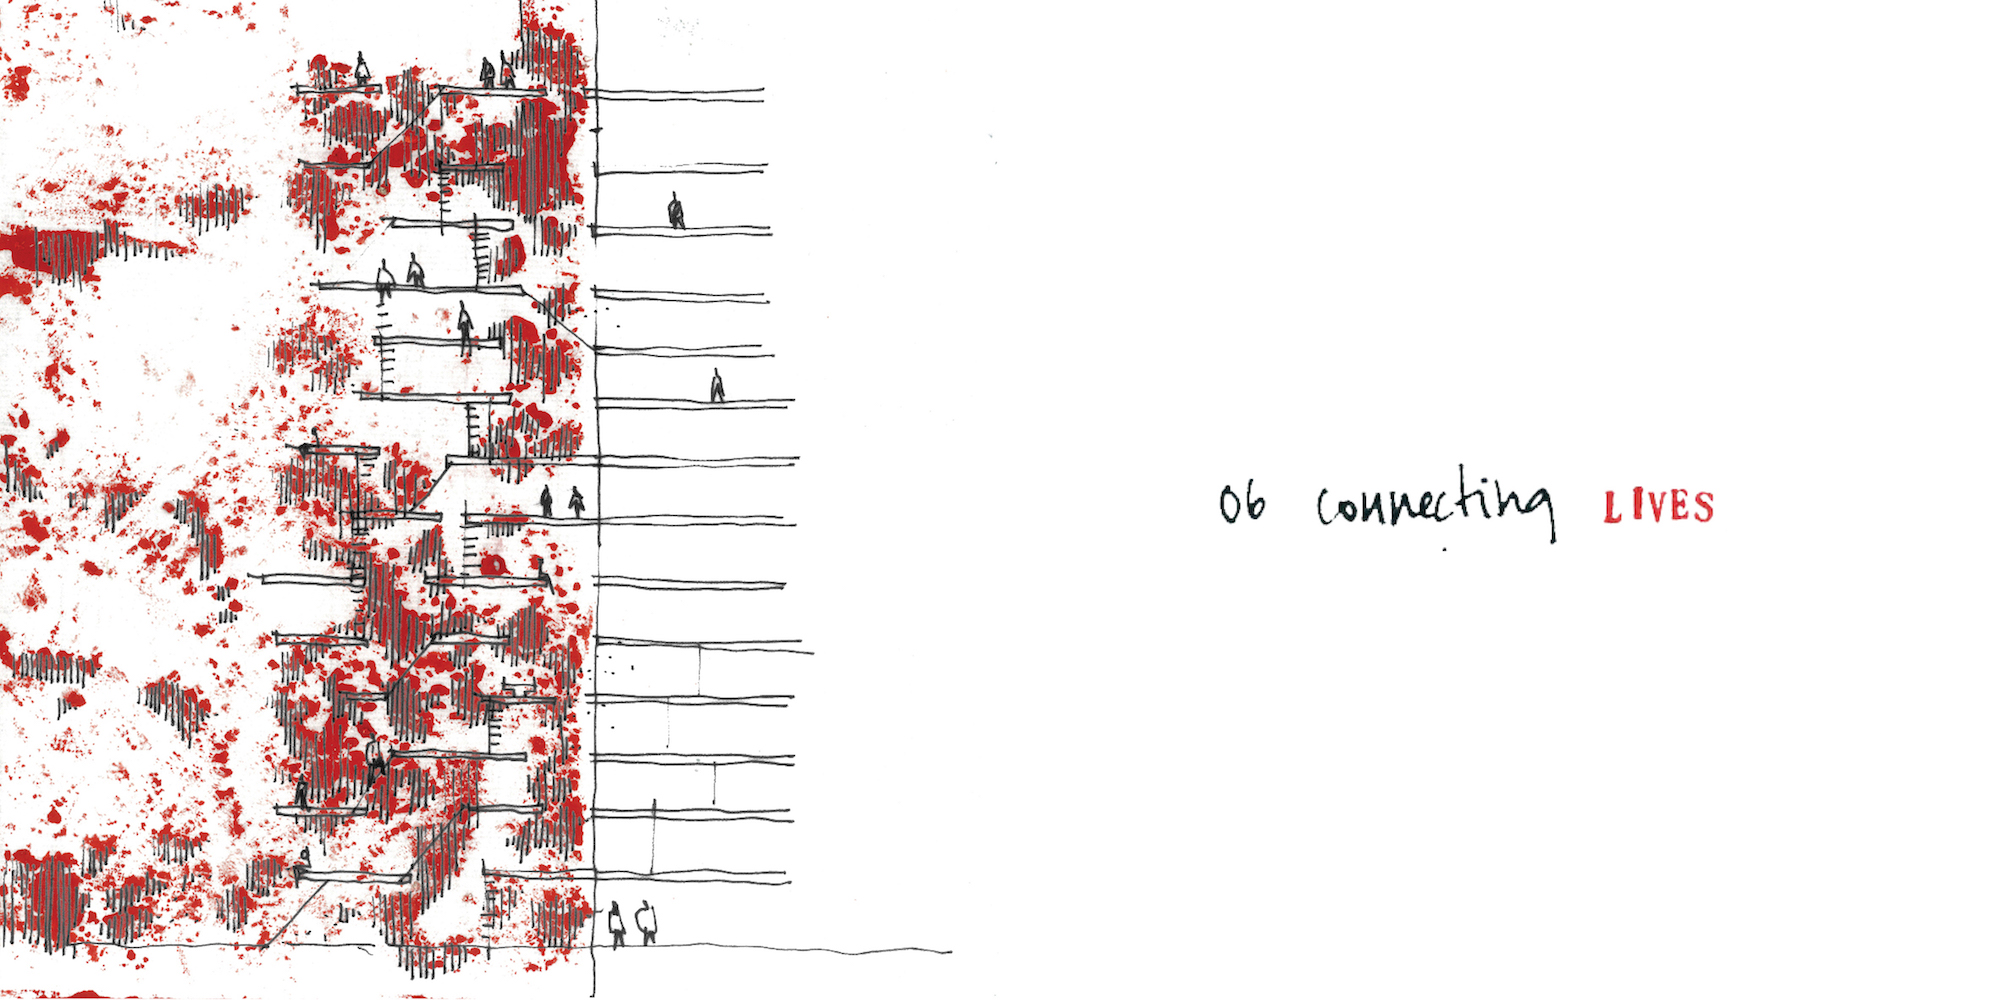 06 connecting LIVES